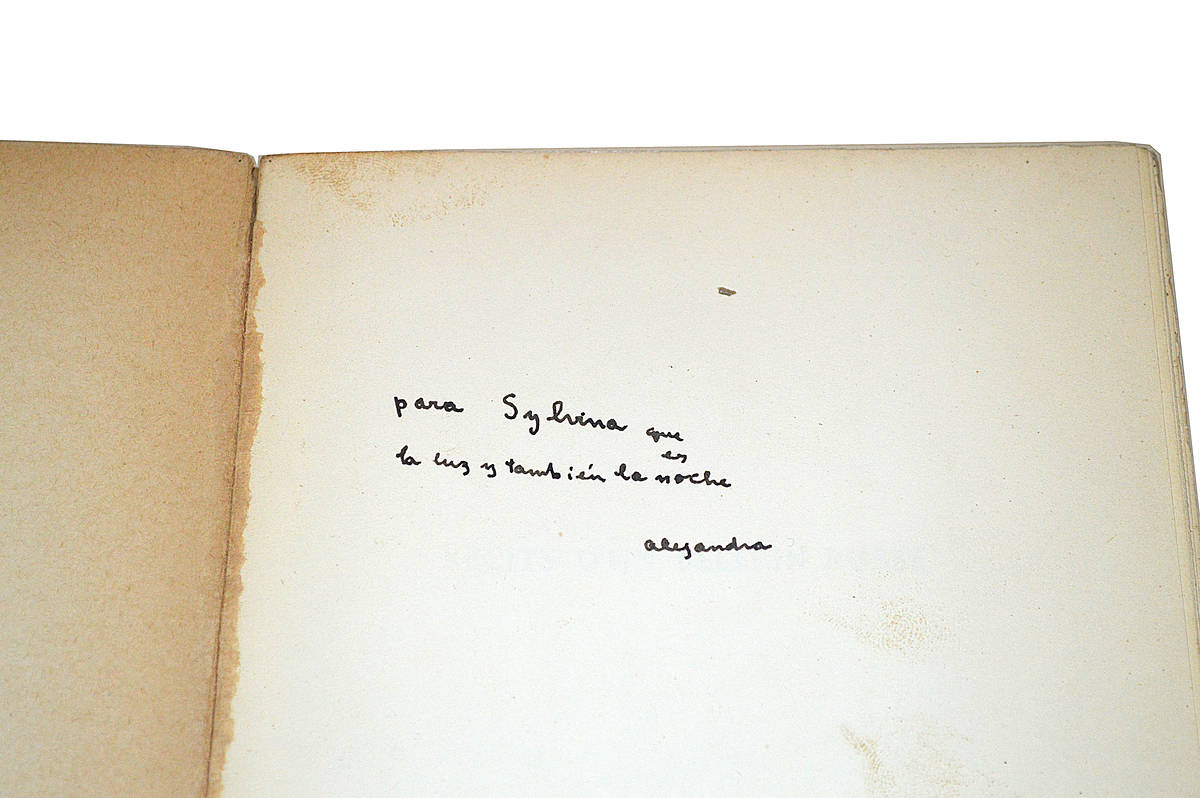 para Sylvina que
es
la luz y también la noche
alejandra